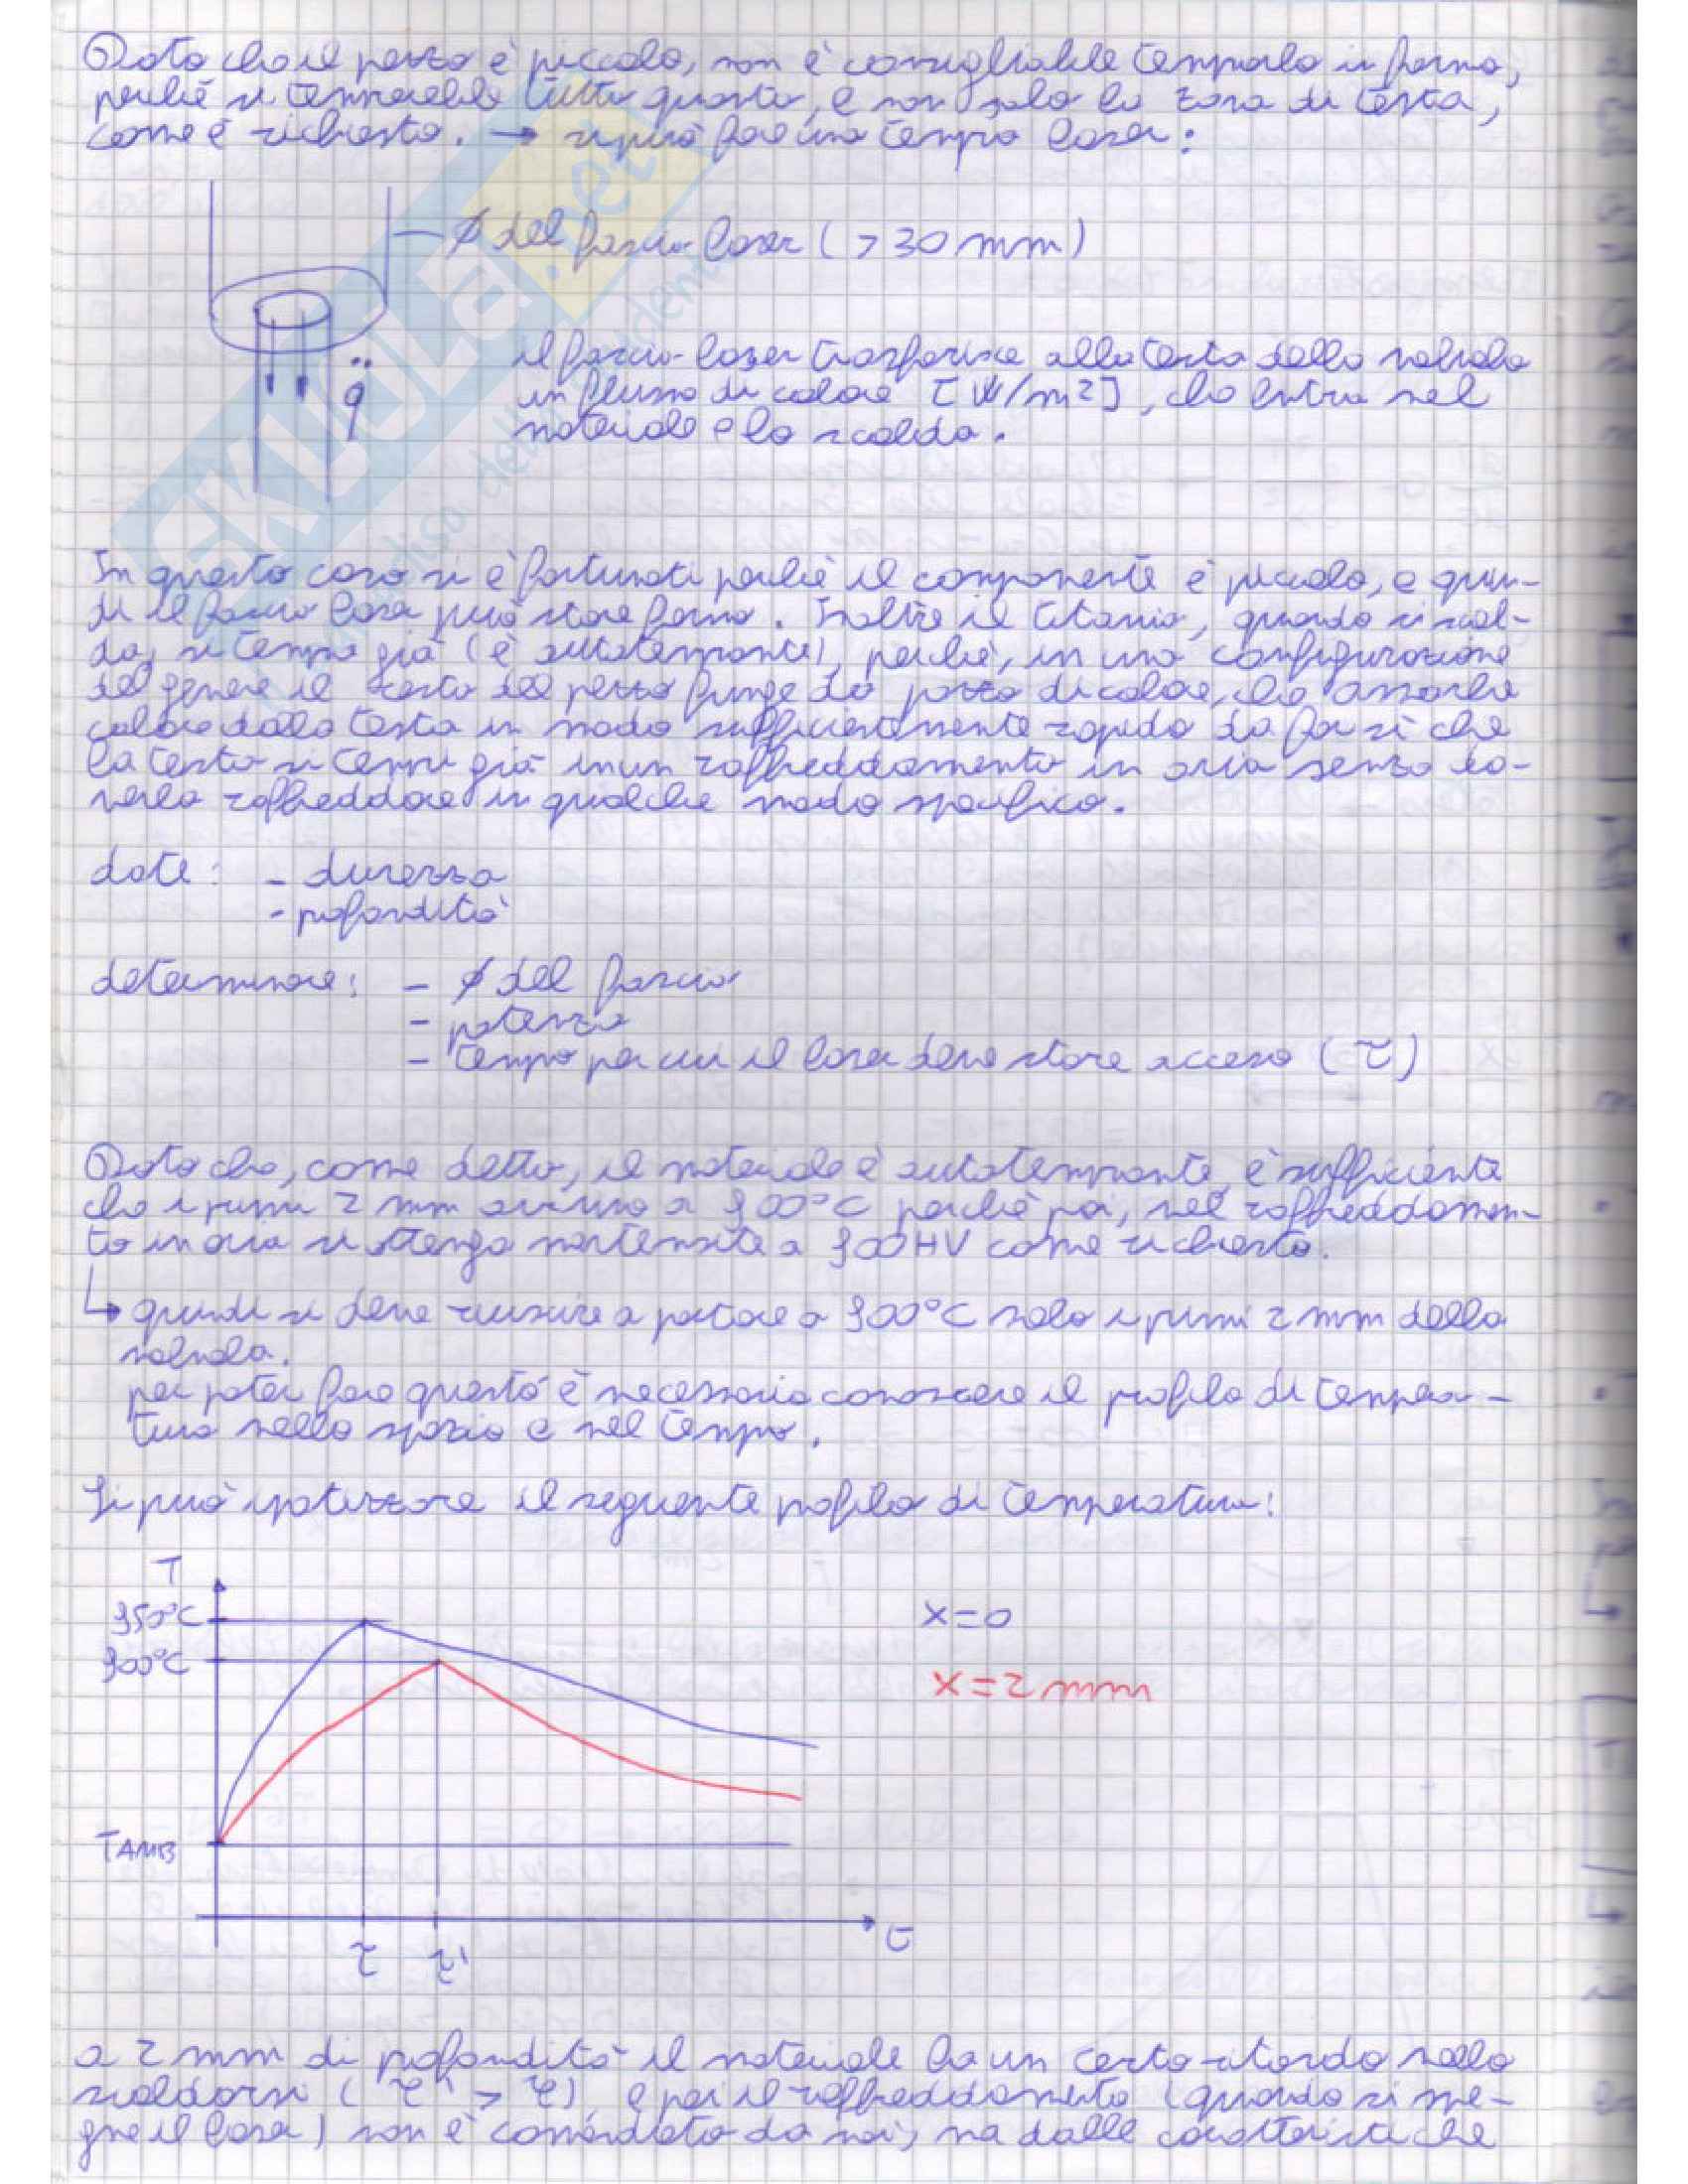 Dato che il pezzo è piccolo, non è consigliabile temprarlo in forno,
perché si temprerebbe tutto quanto, e non solo la zona di testa,
come è richiesto. → si può fare una tempra laser:
φ del fascio laser (> 30 mm)
q̈
il fascio laser trasferisce alla testa della valvola
un flusso di calore [W/m²], che entra nel
materiale e lo scalda.
In questo caso si è fortunati perché il componente è piccolo, e quin-
di il fascio laser può stare fermo. Inoltre il titanio, quando si scal-
da, si tempra già (è autotemprante), perché, in una configurazione
del genere il resto del pezzo funge da pozzo di calore, che assorbe
calore dalla testa in modo sufficientemente rapido da far sì che
la testa si tempri già in un raffreddamento in aria senza do-
verla raffreddare in qualche modo specifico.
date: - durezza
- profondità
determinare: - φ del fascio
- potenza
- tempo per cui il laser deve stare acceso (τ)
Dato che, come detto, il materiale è autotemprante, è sufficiente
che i primi 2 mm arrivino a 900°C perché poi, nel raffreddamen-
to in aria si ottenga martensite a 900HV come richiesto.
↳ quindi si deve riuscire a portare a 900°C solo i primi 2 mm della
valvola.
per poter fare questo è necessario conoscere il profilo di tempera-
tura nello spazio e nel tempo.
Si può ipotizzare il seguente profilo di temperatura:
T
950°C
900°C
TAMB
τ
τ'
t
x=0
x=2mm
a 2 mm di profondità il materiale ha un certo ritardo nello
scaldarsi (τ' > τ), e poi il raffreddamento (quando si spe-
gne il laser) non è comandato da noi, ma dalle caratteristiche
SKUOLA.net